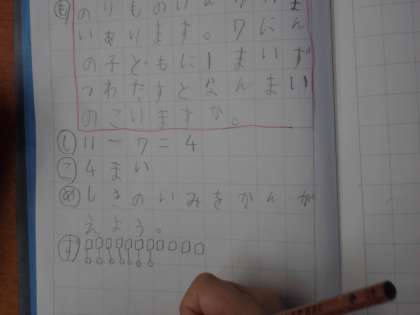 のりものけんが
いあります。7にん
の子どもに1まいず
つわたすとなんまい
のこりますか。
し 11-7=4
こ 4まい
め しきのいみをかんが
えよう。
ず